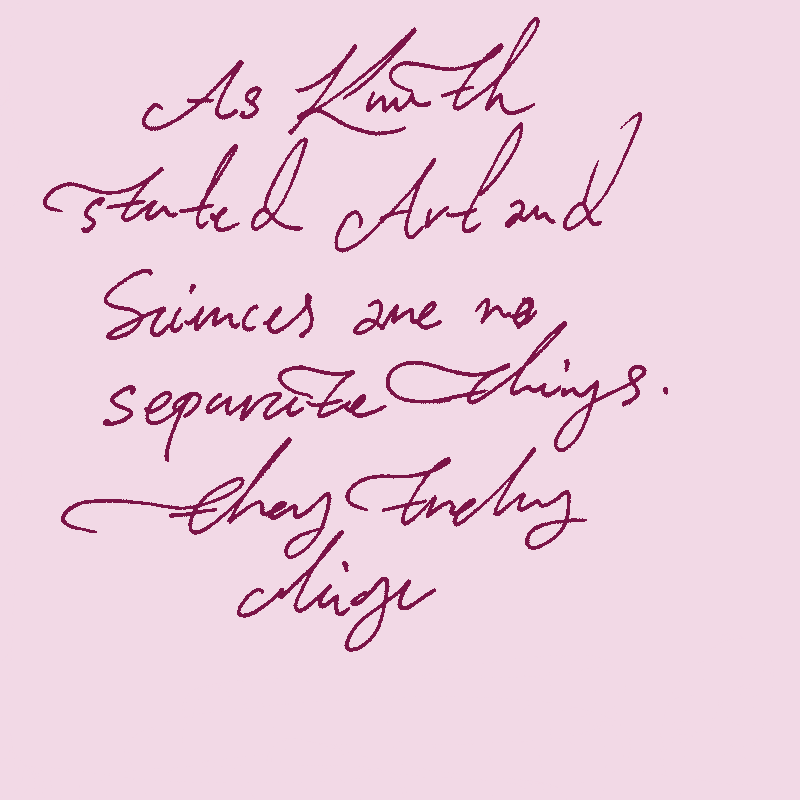 As Knuth
stated Art and
Sciences are no
separate things.
they